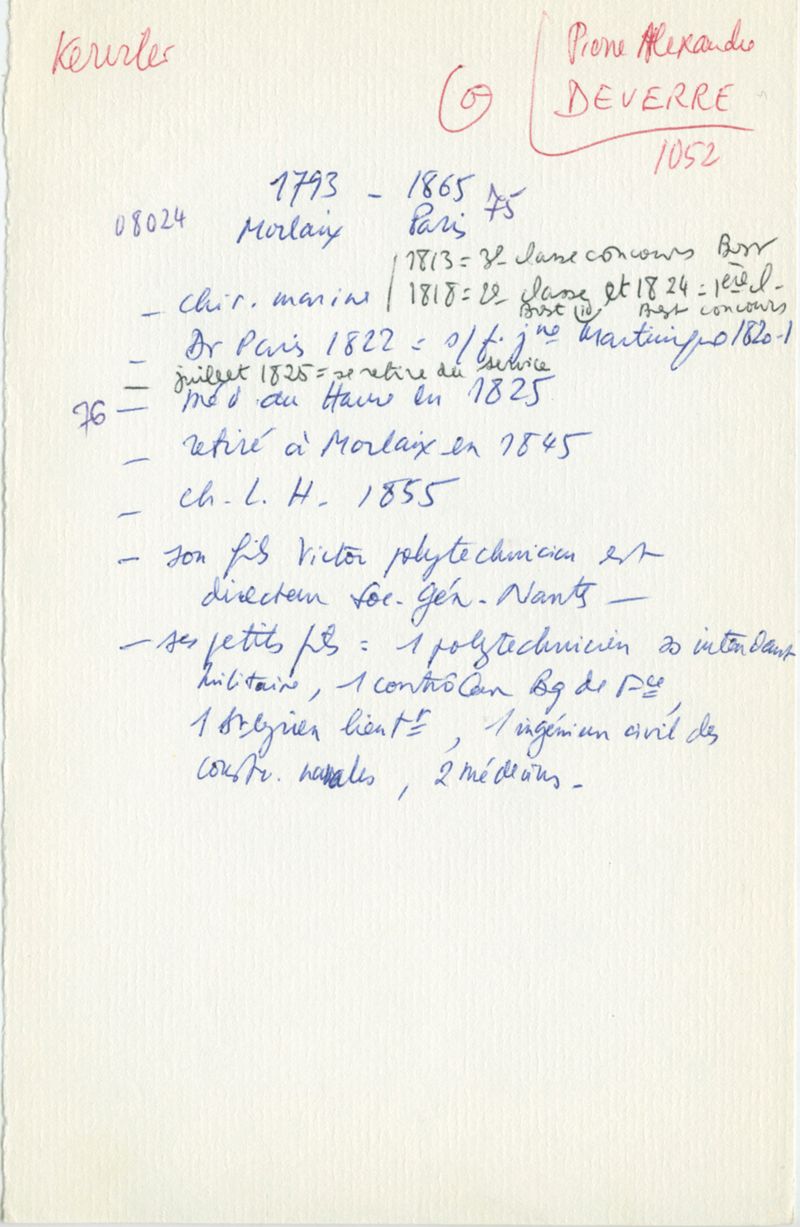 Pierre Alexandre
DEVERRE
1052
1793 - 1865 75
08024 Morlaix Paris
1813 = 3e classe concours Brest
- chir. marine 1818 = 2e classe et 1824 = 1ère cl.
Brest Brest concours
- Dr Paris 1822 = s/ f. jne Martinique 1820-1
- juillet 1825 = se retire du service
76 - méd. au Havre en 1825
- retiré à Morlaix en 1845
- ch. L. H. 1855
- son fils Victor polytechnicien est
directeur Soc. Gén. Nantes -
- ses petits fils = 1 polytechnicien intendant
militaire, 1 contrôleur Bq de Fce,
1 St Cyrien lieutt, 1 ingénieur civil des
constr. navales, 2 médecins -